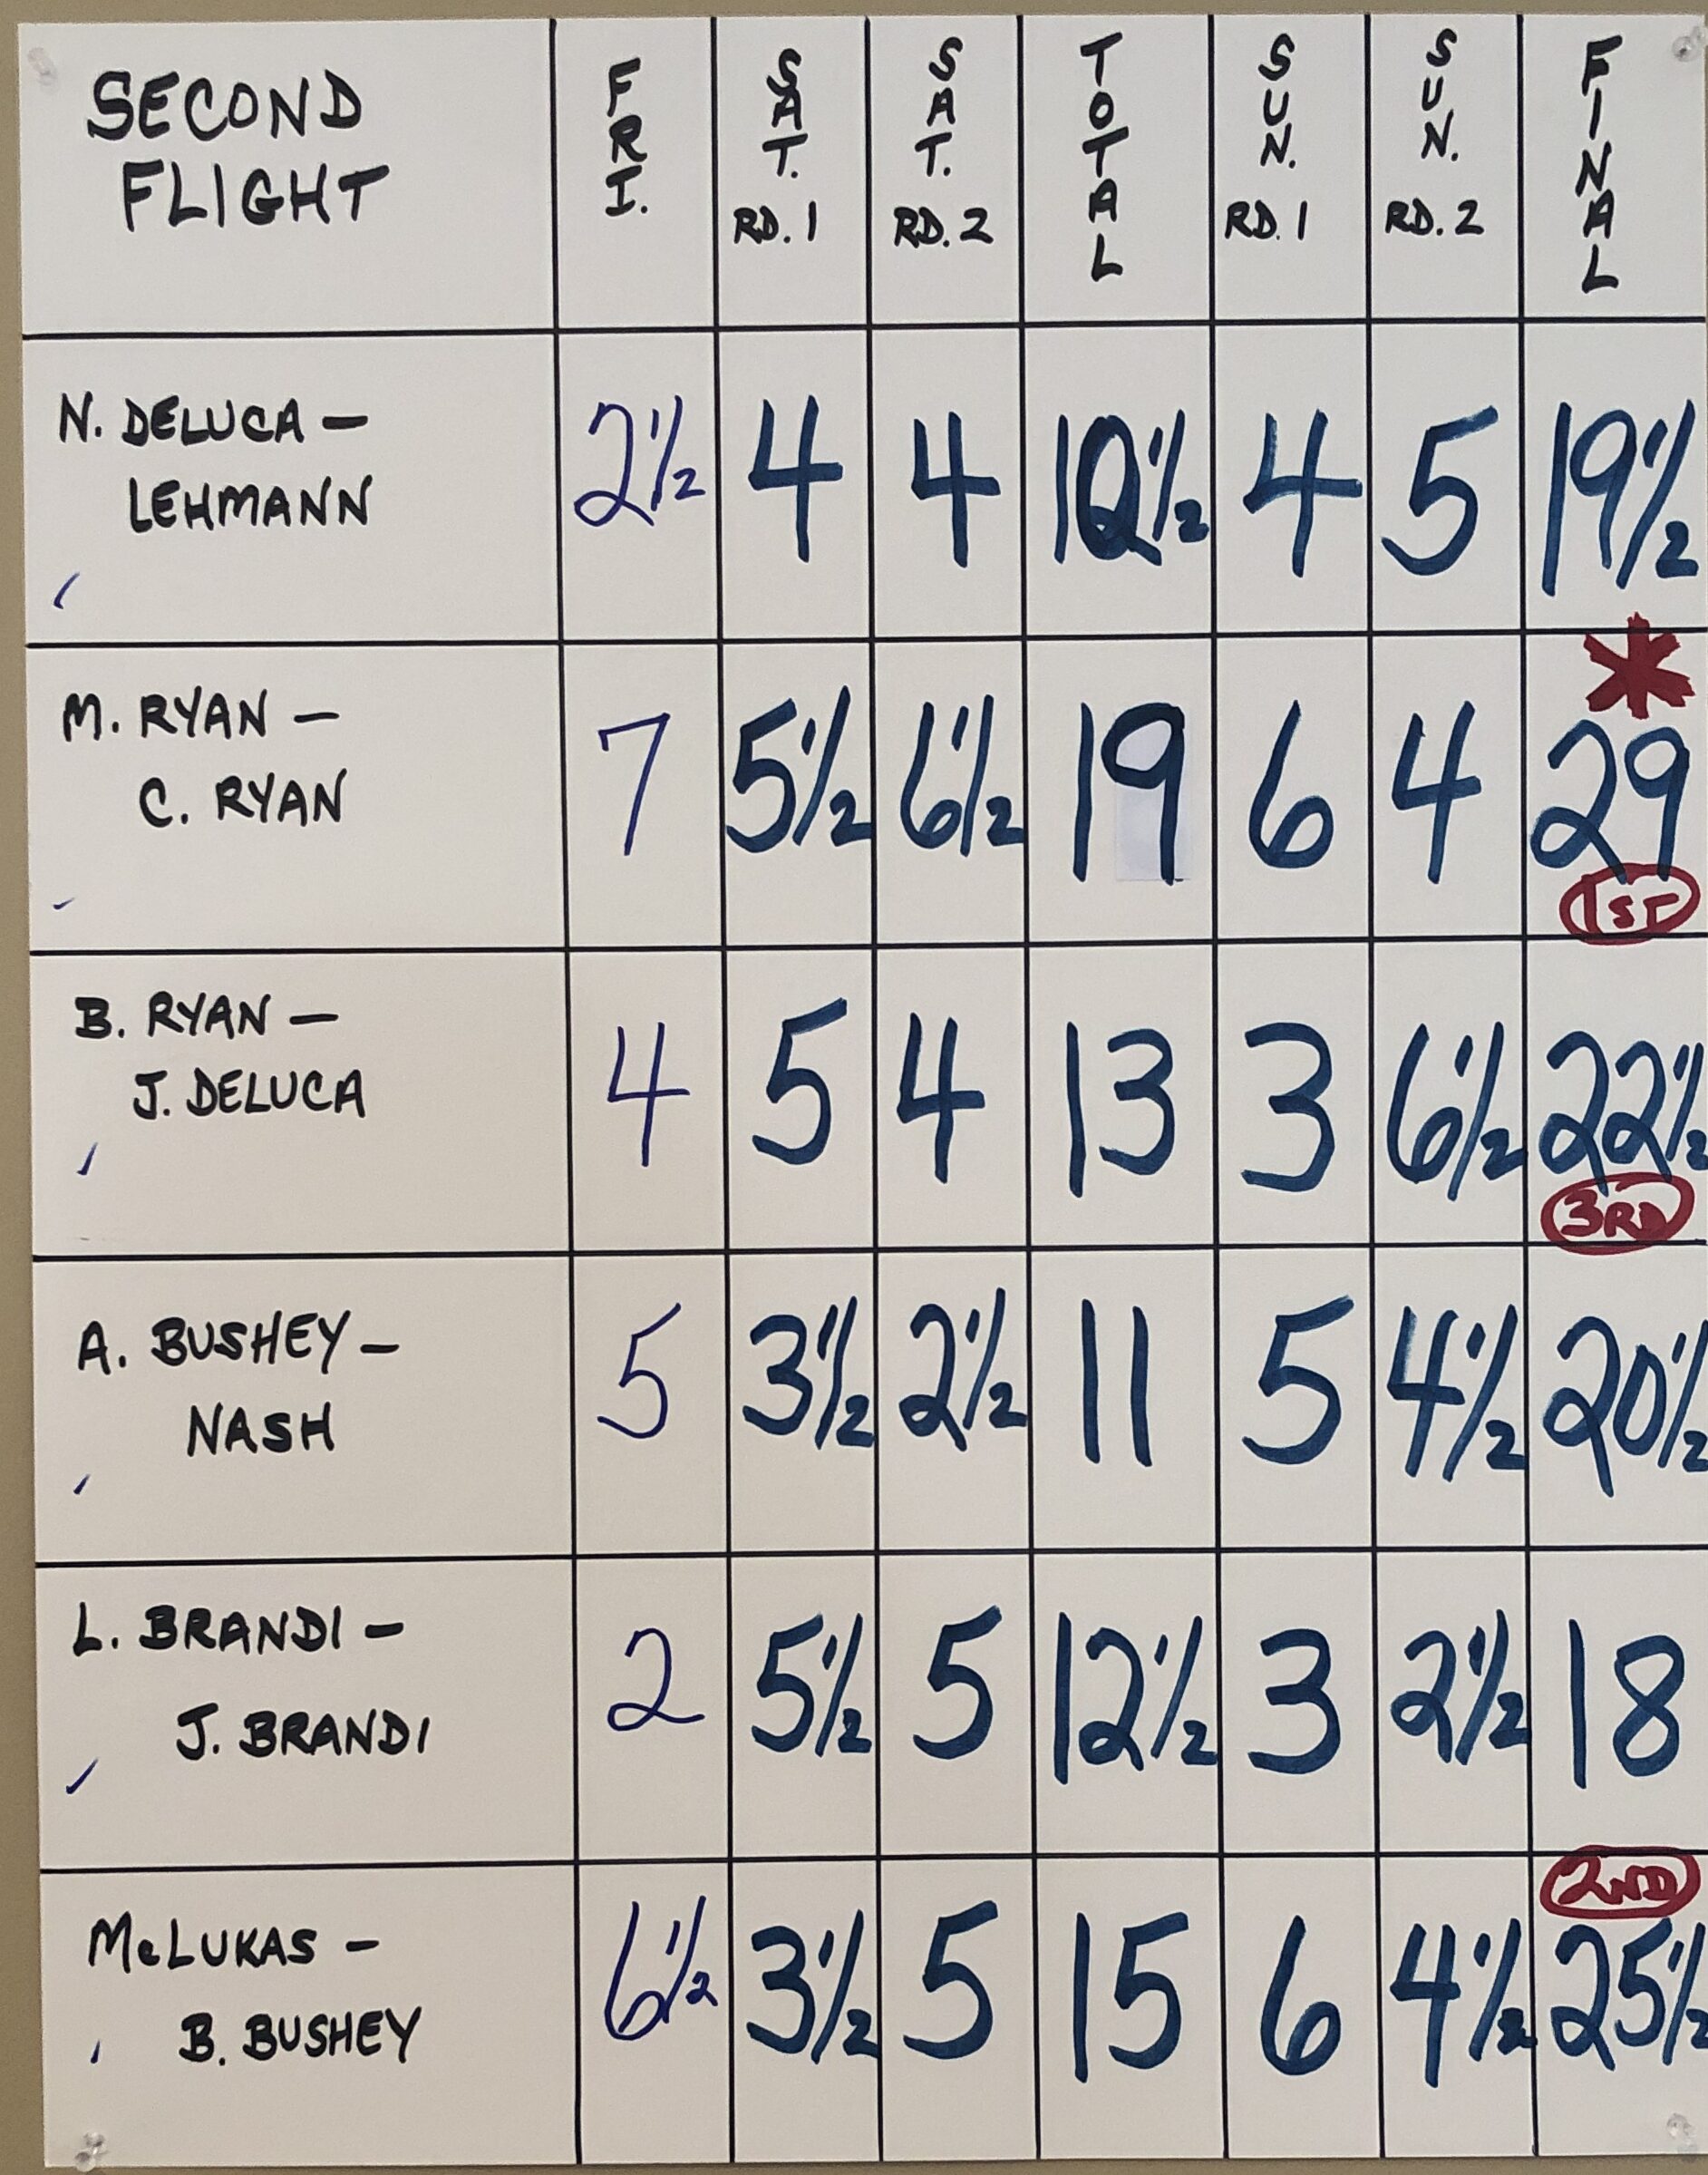 SECOND FLIGHT FRI. SAT. RD. 1 SAT. RD. 2 TOTAL SUN. RD. 1 SUN. RD. 2 FINAL
N. DELUCA –
LEHMANN
2 1/2 4 4 10 1/2 4 5 19 1/2
M. RYAN –
C. RYAN
7 5 1/2 6 1/2 19 6 4 * 29 1ST
B. RYAN –
J. DELUCA
4 5 4 13 3 6 1/2 22 1/2 3RD
A. BUSHEY –
NASH
5 3 1/2 2 1/2 11 5 4 1/2 20 1/2
L. BRANDI –
J. BRANDI
2 5 1/2 5 12 1/2 3 2 1/2 18
McLUKAS –
B. BUSHEY
6 1/2 3 1/2 5 15 6 4 1/2 2ND 25 1/2